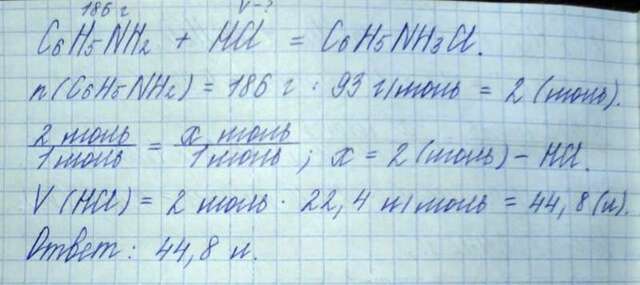 186 г V-?
C6H5NH2 + HCl = C6H5NH3Cl.
n(C6H5NH2) = 186 г : 93 г/моль = 2 (моль).
2 моль/1 моль = x моль/1 моль ; x = 2 (моль) - HCl.
V (HCl) = 2 моль · 22,4 л/моль = 44,8 (л).
Ответ: 44,8 л.